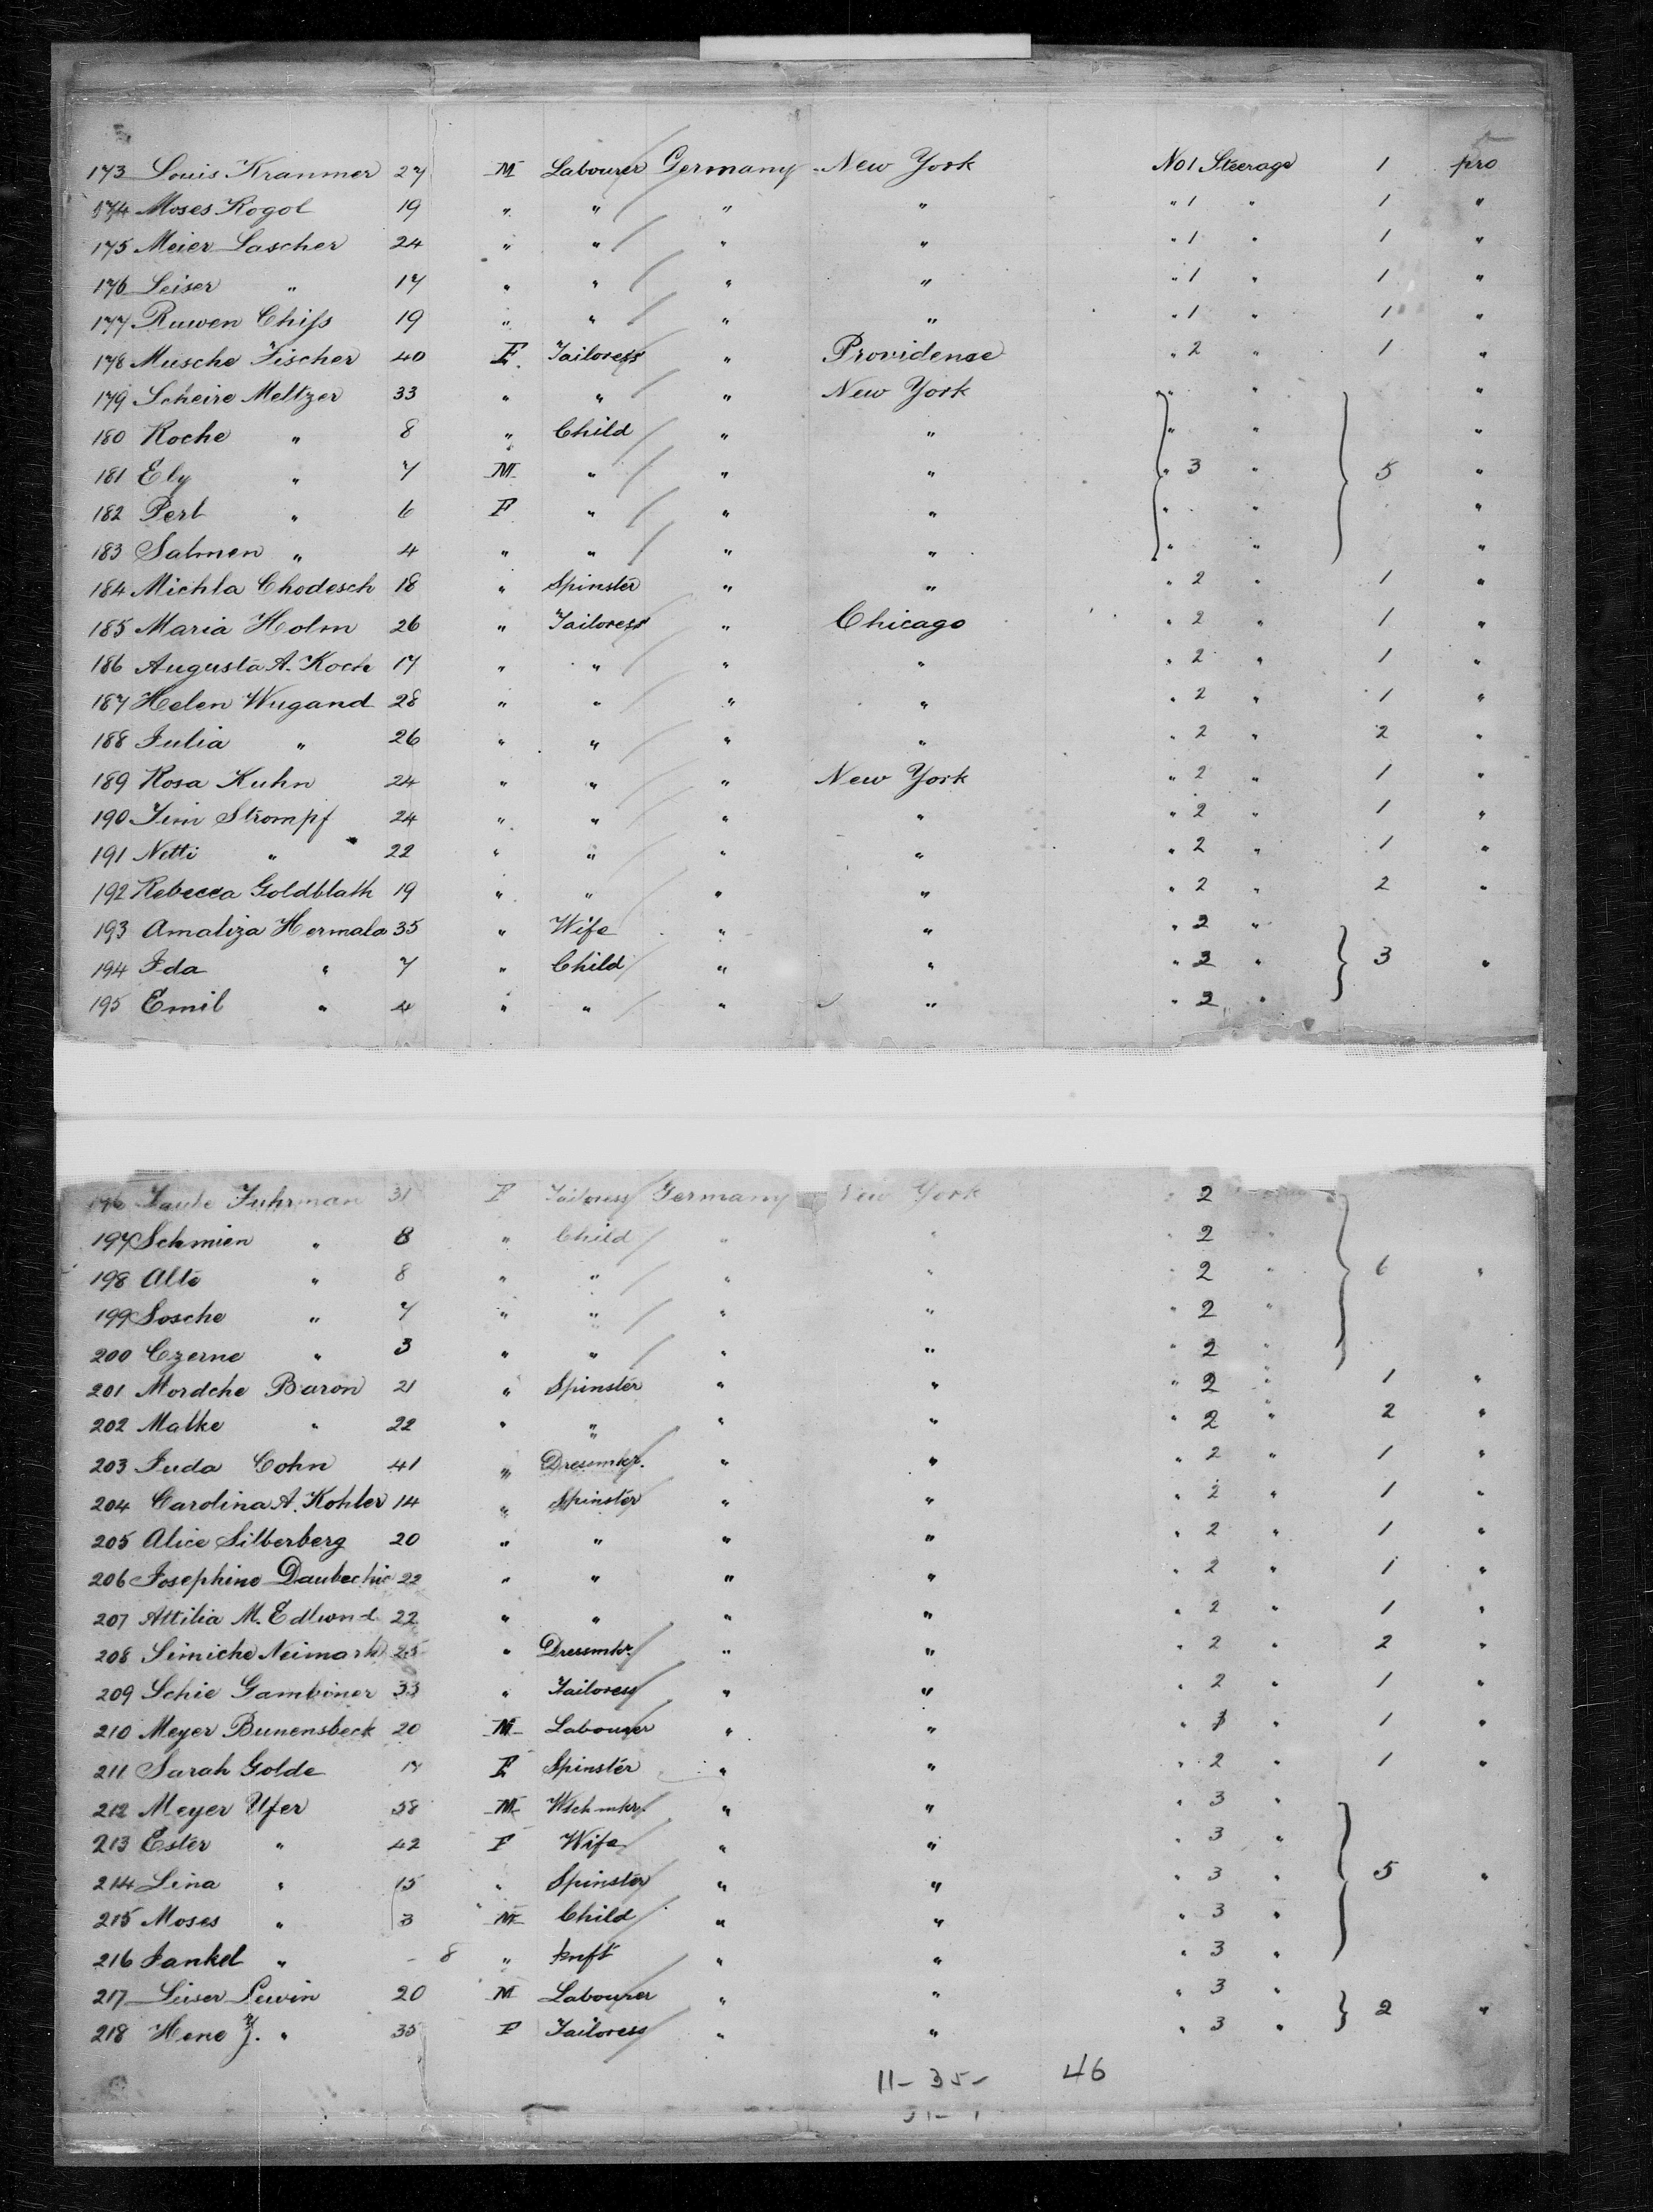 173 Louis Kranmer 27 M Labourer Germany New York No 1 Steerage 1 pro
174 Moses Kogol 19 " " " " " 1 " 1 "
175 Meier Lascher 24 " " " " " 1 " 1 "
176 Leiser " 17 " " " " " 1 " 1 "
177 Ruwen Chifs 19 " " " " " 1 " 1 "
178 Musche Fischer 40 F. Tailoress " Providense " 2 " 1 "
179 Scheire Meltzer 33 " " " New York " " "
180 Roche " 8 " Child " " " " "
181 Ely " 7 M " " " " 3 " 5 "
182 Perl " 6 F " " " " " "
183 Salmen " 4 " " " " " " "
184 Michla Chodesch 18 " Spinster " " " 2 " 1 "
185 Maria Holm 26 " Tailoress " Chicago " 2 " 1 "
186 Augusta A. Koch 17 " " " " " 2 " 1 "
187 Helen Wugand 28 " " " " " 2 " 1 "
188 Julia " 26 " " " " " 2 " 2 "
189 Rosa Kuhn 24 " " " New York " 2 " 1 "
190 Jim Strompf 24 " " " " " 2 " 1 "
191 Netti " 22 " " " " " 2 " 1 "
192 Rebecca Goldblath 19 " " " " " 2 " 2 "
193 Amaliza Hermala 35 " Wife " " " 2 "
194 Ida " 7 " Child " " " 2 " 3 "
195 Emil " 4 " " " " " 2 "
196 Taube Fuhrman 31 F Tailoress Germany New York " 2
197 Schmien " 8 " Child " " " 2 "
198 Alte " 8 " " " " " 2 " 6 "
199 Sosche " 7 " " " " " 2 "
200 Czerne " 3 " " " " " 2 "
201 Mordche Baron 21 " Spinster " " " 2 " 1 "
202 Malke " 22 " " " " " 2 " 2 "
203 Juda Cohn 41 " Dressmkr. " " " 2 " 1 "
204 Carolina A. Kohler 14 " Spinster " " " 2 " 1 "
205 Alice Silberberg 20 " " " " " 2 " 1 "
206 Josephine Daubechie 22 " " " " " 2 " 1 "
207 Attilia M. Edlund 22 " " " " " 2 " 1 "
208 Simiche Neimark 25 " Dressmkr. " " " 2 " 2 "
209 Schie Gambiner 33 " Tailoress " " " 2 " 1 "
210 Meyer Bunensbeck 20 M Labourer " " " 1 " 1 "
211 Sarah Golde 17 F Spinster " " " 2 " 1 "
212 Meyer Ufer 58 M Wtchmkr. " " " 3 "
213 Ester " 42 F Wife " " " 3 "
214 Lina " 15 " Spinster " " " 3 " 5 "
215 Moses " 3 M Child " " " 3 "
216 Jankel " - 8 " Inft " " " 3 "
217 Leiser Lewin 20 M Labourer " " " 3 "
218 Hene J. " 35 F Tailoress " " " 3 " 2 "
11 - 35 - 46